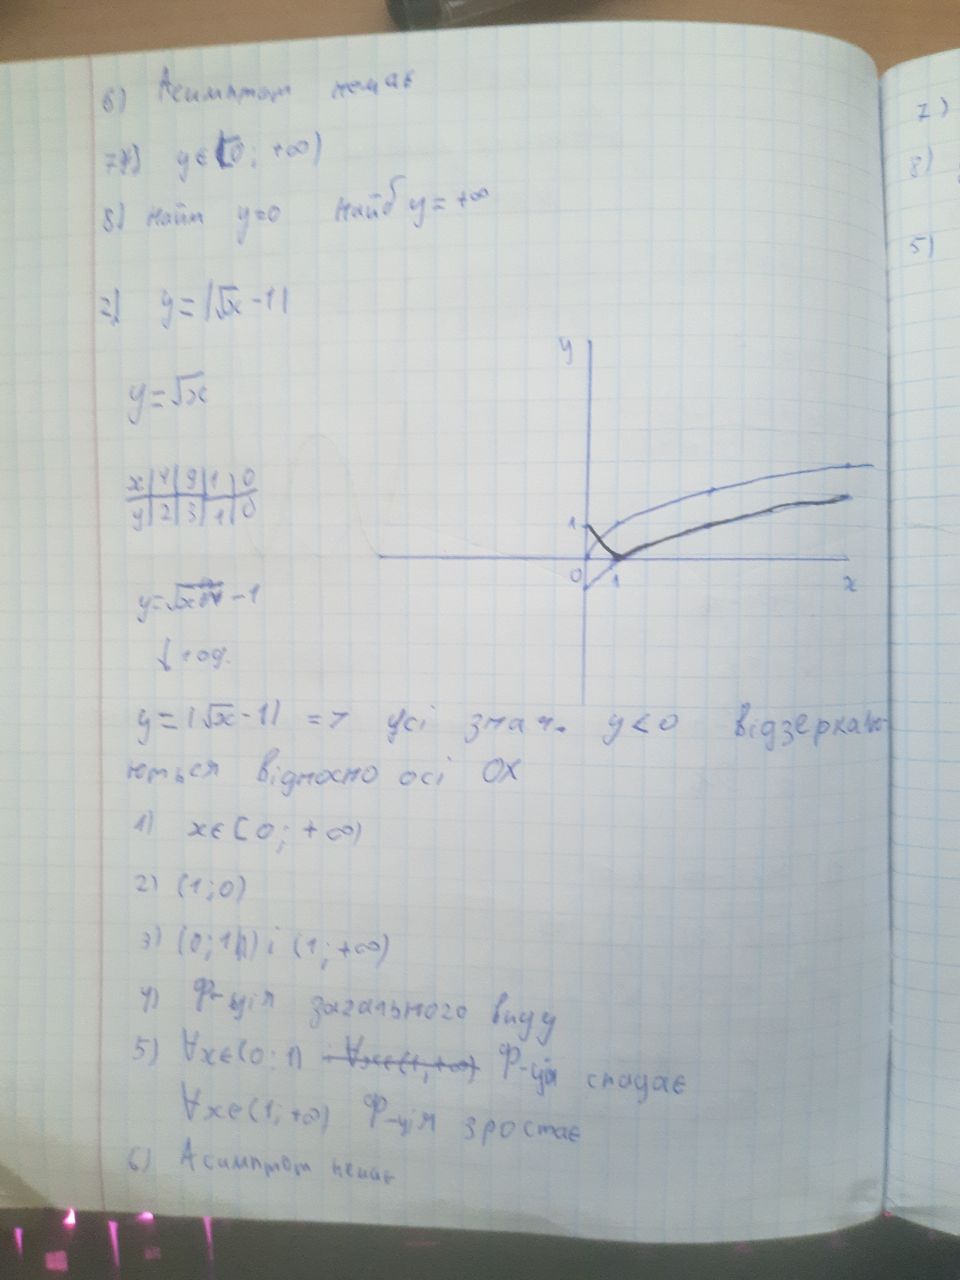 6) Асимптот немає
7) y є [0; +∞)
8) найм y=0 найб y = +∞
=] y = |√x -1|
y = √x
x | 4 | 9 | 1 | 0
y | 2 | 3 | 1 | 0
y
1
0
1
x
y = √x - 1
↓ 1 од.
y = |√x - 1| => усі знач. y < 0 відзеркалю-
ються відносно осі ОХ
1) xє[0; +∞)
2) (1;0)
3) (0;1) і (1; +∞)
4) Ф-ція загального виду
5) ∀xє(0;1) ∀xє(1;+∞) Ф-ція спадає
∀xє(1;+∞) Ф-ція зростає
6) Асимптот немає
7)
8)
5)